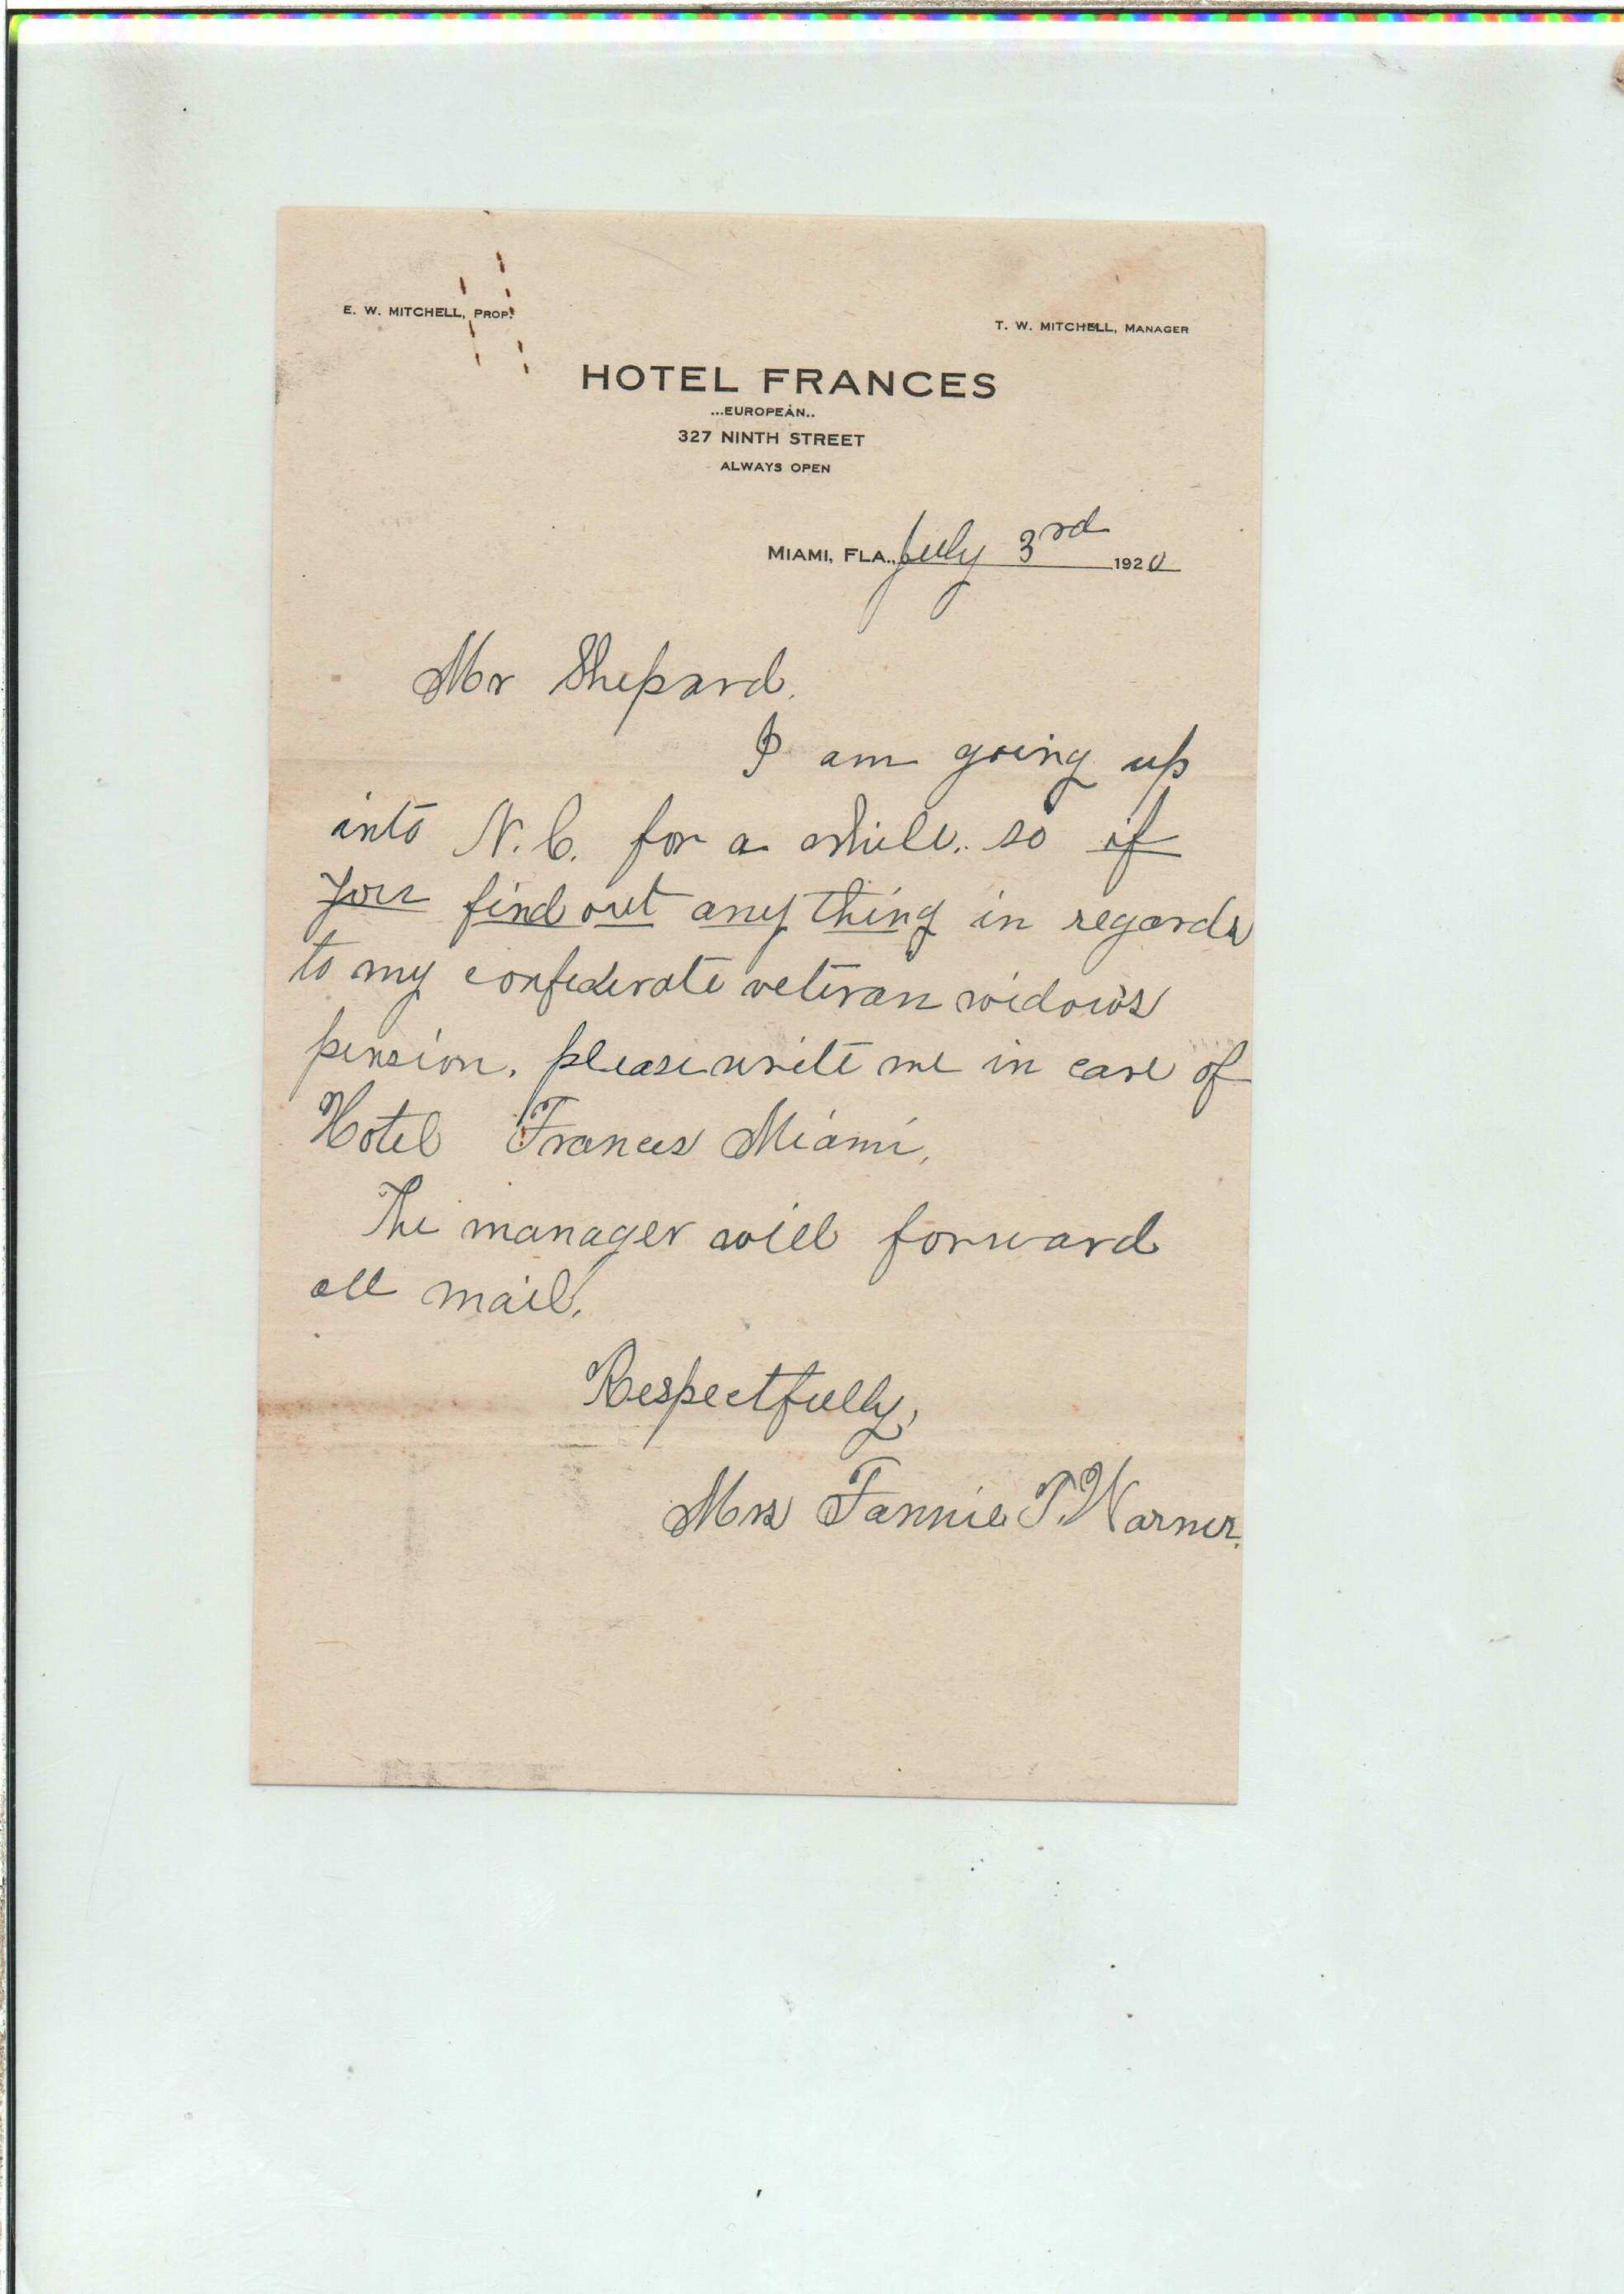 E. W. MITCHELL, PROP.
T. W. MITCHELL, MANAGER
HOTEL FRANCES
...EUROPEAN..
327 NINTH STREET
ALWAYS OPEN
MIAMI, FLA., July 3rd 1920
Mr Shepard.
I am going up
into N.C. for a while. so if
you find out any thing in regards
to my confederate veteran widow's
pension, please write me in care of
Hotel Frances Miami,
The manager will forward
all mail.
Respectfully,
Mrs Fannie T. Warner.